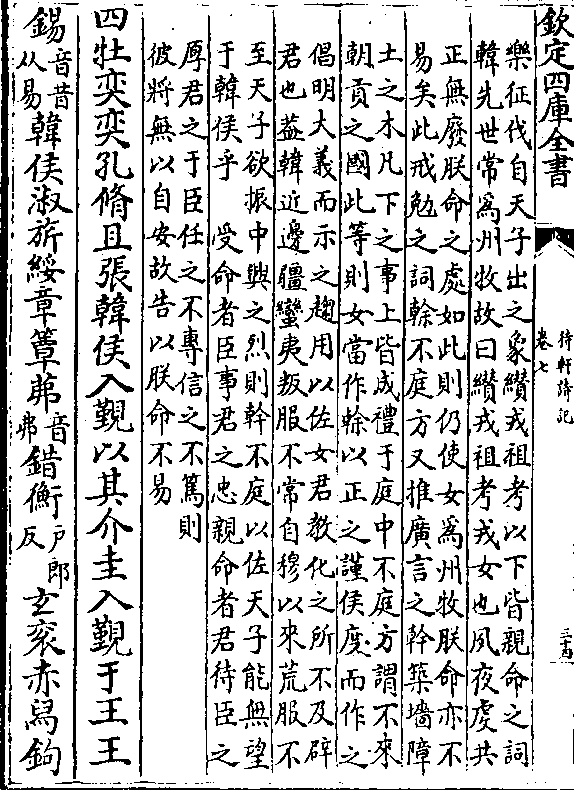 欽定四庫全書
待軒詩記
卷七
三十四
樂征伐自天子出之象纘戎祖考以下皆親命之詞
韓先世常為州牧故曰纘戎祖考戎女也夙夜虔共
正無廢朕命之處如此則仍使女為州牧朕命亦不
易矣此戒勉之詞榦不庭方又推廣言之幹築墻障
土之木凡下之事上皆成禮于庭中不庭方謂不來
朝貢之國此等則女當作榦以正之謹侯度而作之
倡明大義而示之趨用以佐女君教化之所不及辟
君也葢韓近邊疆蠻夷叛服不常自穆以來荒服不
至天子欲振中興之烈則幹不庭以佐天子能無望
于韓侯乎 受命者臣事君之忠親命者君待臣之
厚君之于臣任之不專信之不篤則
彼將無以自安故告以朕命不易
四牡奕奕孔脩且張韓侯入覲以其介圭入覲于王王
錫音昔从易韓侯淑旂綏章簟茀音弗錯衡戸郎反玄衮赤舄鉤